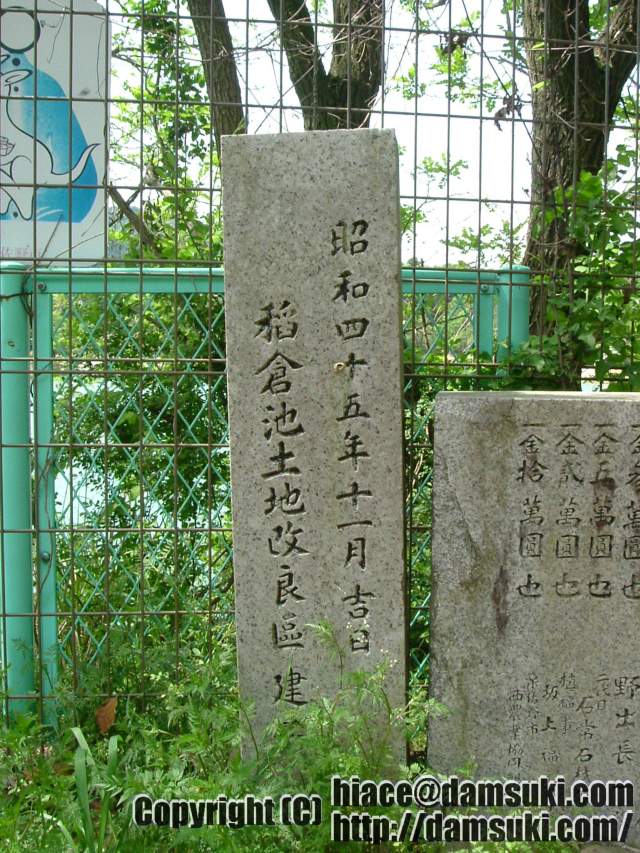 昭和四十五年十一月吉日
稲倉池土地改良區建
萬圓也
一金五萬圓也
一金貳萬圓也
一金拾萬圓也
野出長
坂上
Copyright (C) hiace@damsuki.com
http://damsuki.com/